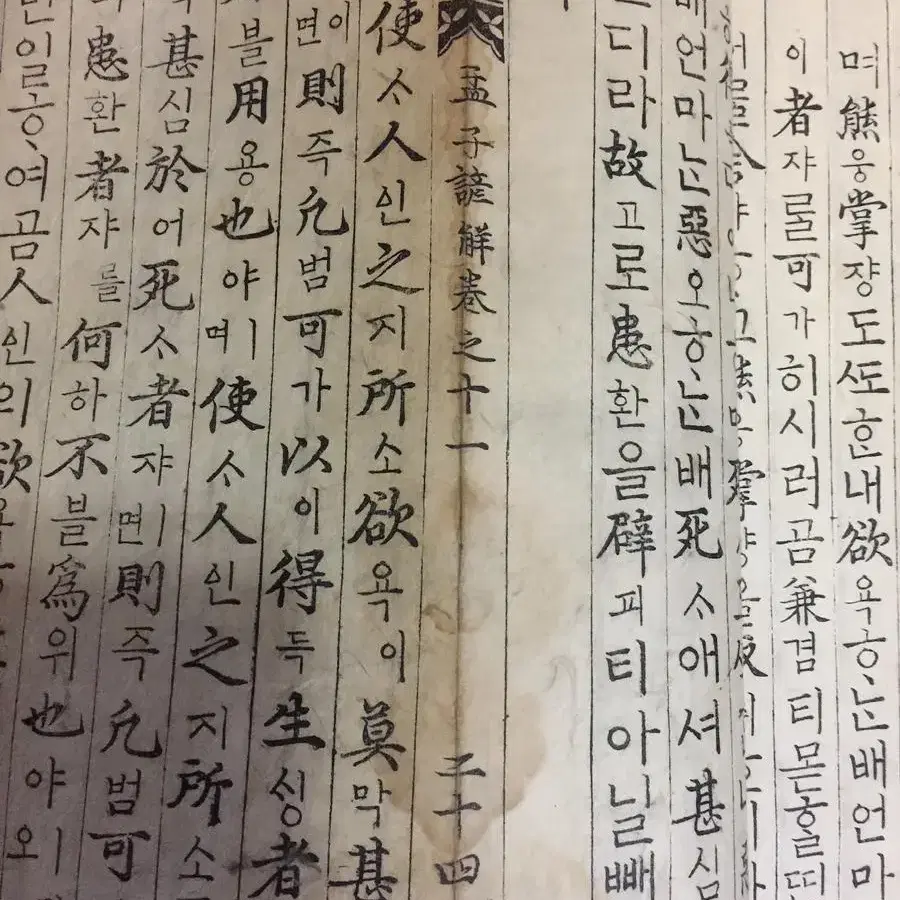 며熊웅掌쟝도ᄯᅩᄒᆞᆫ내欲욕ᄒᆞᄂᆞᆫ배언마
이者쟈룰可가히시러곰兼겸티몯ᄒᆞᆯ띠
배언마ᄂᆞᆫ惡오ᄒᆞᄂᆞᆫ배死ᄉᆞ애셔甚심
디라故고로患환을辟피티아닐빼
孟子諺解卷之十一 二十四
使ᄉᆞ人인之지所소欲욕이莫막甚
이면則즉凡범可가以이得득生싱者
블用용也야ㅣ며使ᄉᆞ人인之지所소
甚심於어死ᄉᆞ者쟈ㅣ면則즉凡범可
患환者쟈를何하不블爲위也야ㅣ오
인로ᄒᆞ여곰人인의欲